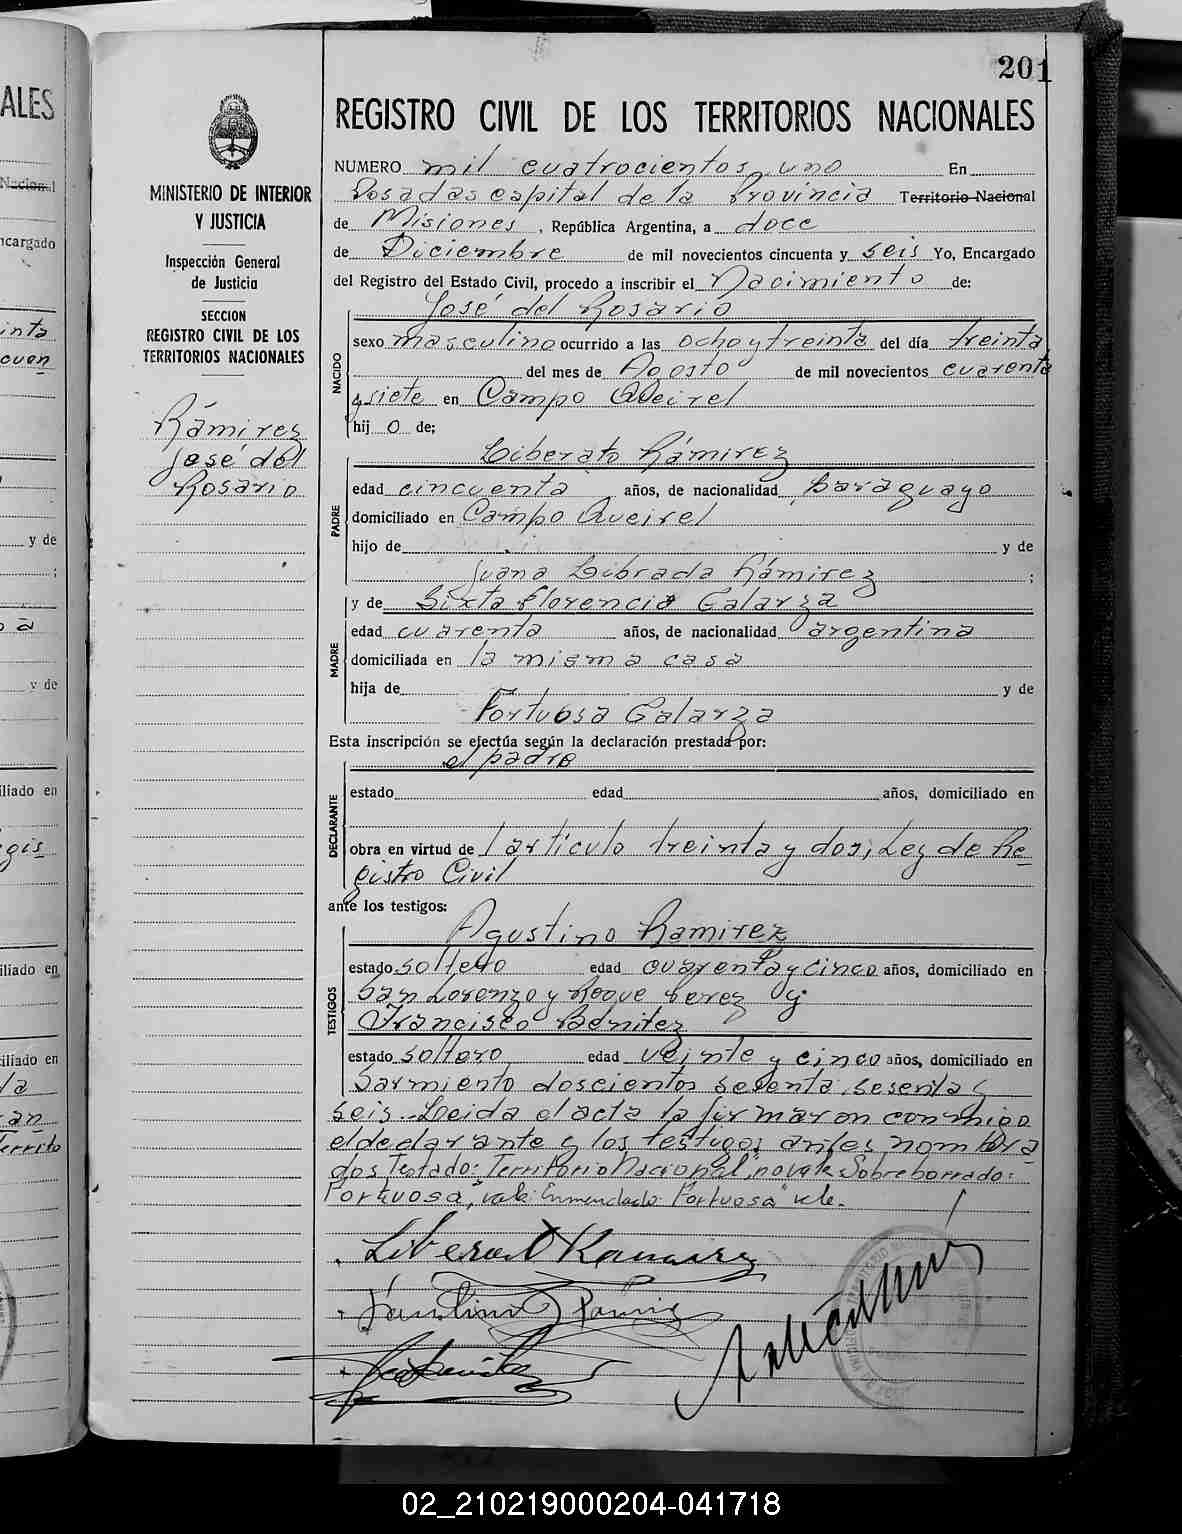 201
ALES
REGISTRO CIVIL DE LOS TERRITORIOS NACIONALES
MINISTERIO DE INTERIOR
Y JUSTICIA
Inspección General
de Justicia
SECCION
REGISTRO CIVIL DE LOS
TERRITORIOS NACIONALES
Rámirez
José del
Rosario
NUMERO mil cuatrocientos uno En
Posadas capital de la Provincia Territorio Nacional
de Misiones, República Argentina, a doce
de Diciembre de mil novecientos cincuenta y seis Yo, Encargado
del Registro del Estado Civil, procedo a inscribir el Nacimiento de:
José del Rosario
NACIDO
sexo masculino ocurrido a las ocho y treinta del día treinta
del mes de Agosto de mil novecientos cuarenta
y siete en Campo Queirel
hij o de;
Liberato Rámirez
PADRE
edad cincuenta años, de nacionalidad paraguayo
domiciliado en Campo Queirel
hijo de y de
Juana Librada Rámirez ;
y de Sixta Florencia Galarza
MADRE
edad cuarenta años, de nacionalidad argentina
domiciliada en la misma casa
hija de y de
Fortuosa Galarza
Esta inscripción se efectúa según la declaración prestada por:
el padre
DECLARANTE
estado edad años, domiciliado en
obra en virtud de l artículo treinta y dos, Ley de Re-
gistro Civil
ante los testigos:
Agustino Ramirez
TESTIGOS
estado soltero edad cuarenta y cinco años, domiciliado en
San Lorenzo y Roque Perez y
Francisco Benitez
estado soltero edad veinte y cinco años, domiciliado en
Sarmiento doscientos sesenta, sesenta y
seis.- Leida el acta la firmaron conmigo
el declarante y los testigos antes nombra
dos Testado: Territorio Nacional, no vale Sobreborrado:
Portuosa, vale Enmendado Portuosa" vale.
Liberato Ramirez
02_210219000204-041718